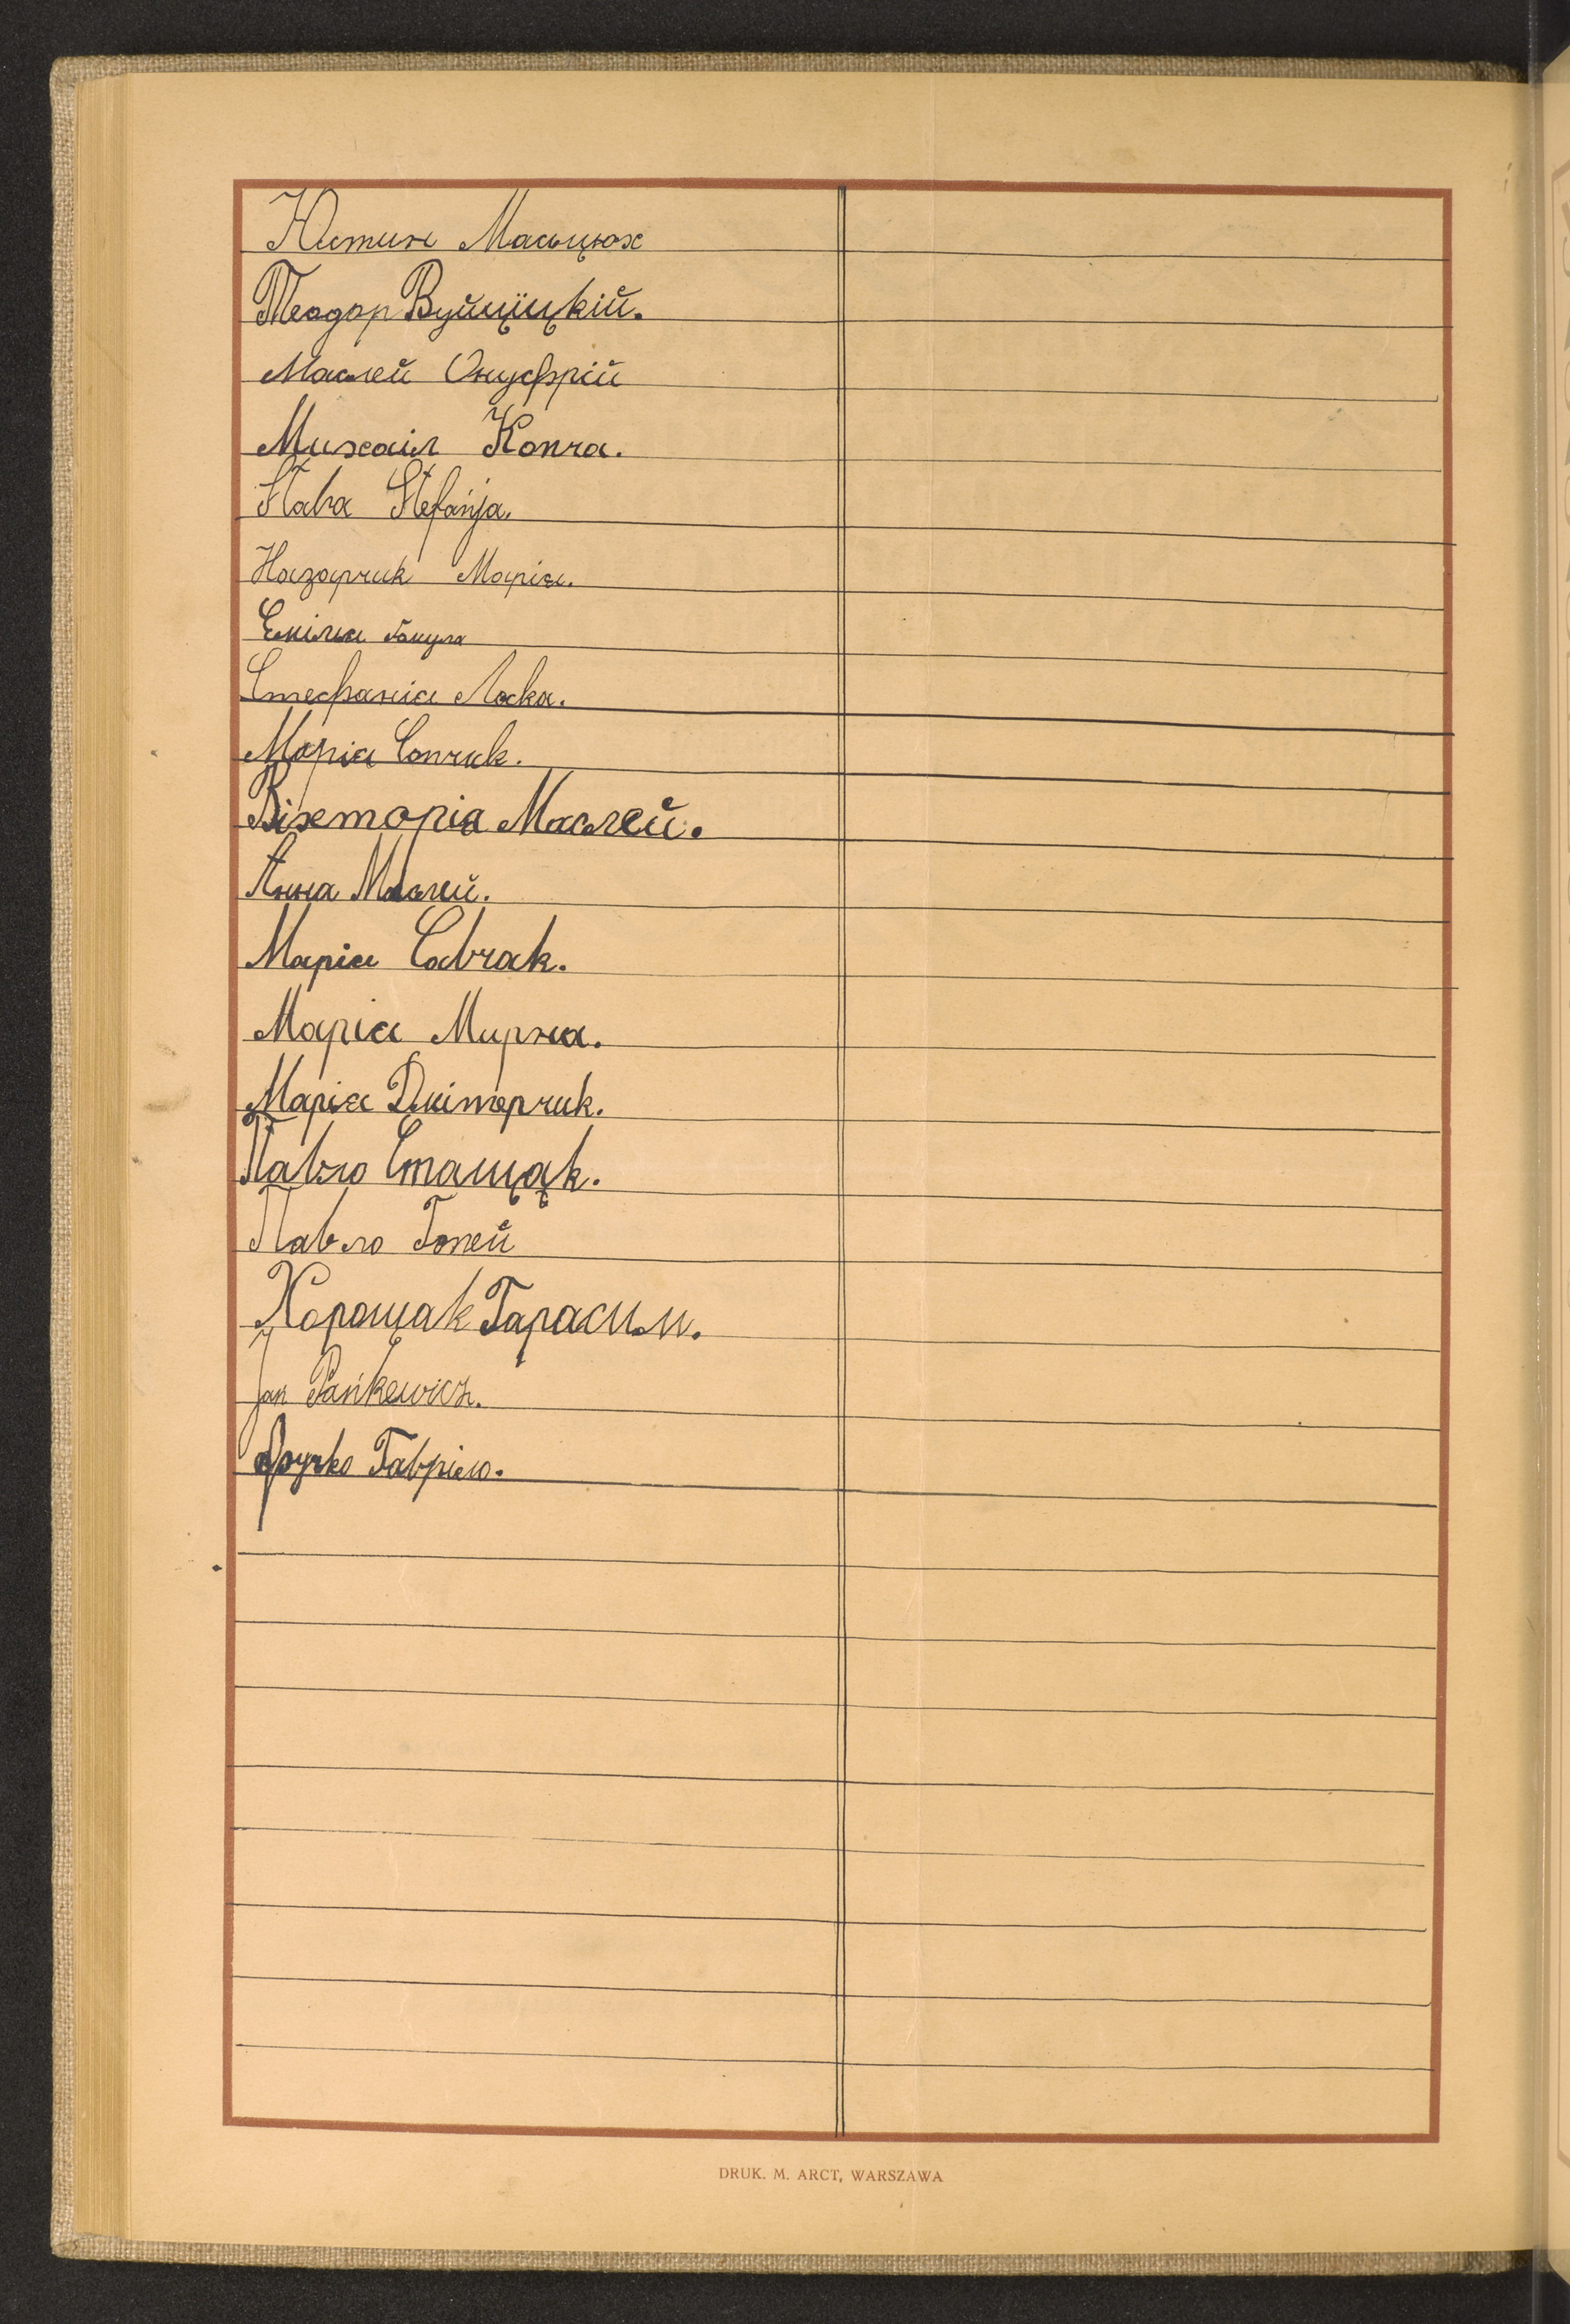 Юстин Масьцюх
Теодор Вуйціцкій.
Маслей Онуфрій
Михаіл Копча.
Stava Stefańja.
Назарчик Марія.
Еміля Гакула
Стефанія Лоска.
Марія Сопчик.
Вікторія Маслей.
Анна Маслей.
Марія Савчак.
Марія Мирна.
Марія Дмітерчик.
Павло Стащак.
Павло Гопей
Хорощак Гарасим.
Jan Pańkewicz.
Фучко Гавріло.
DRUK. M. ARCT, WARSZAWA